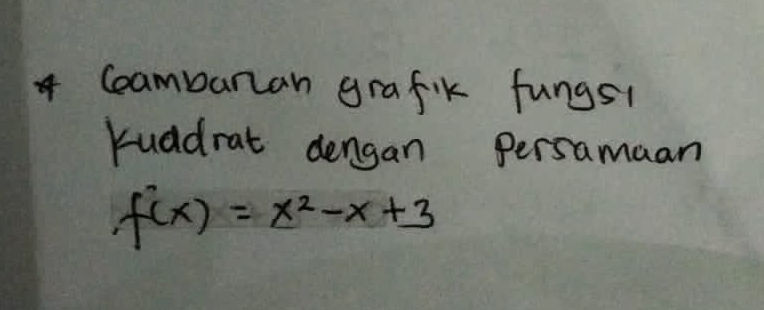 * Gambarlah grafik fungsi
kuadrat dengan Persamaan
f(x) = x² - x + 3